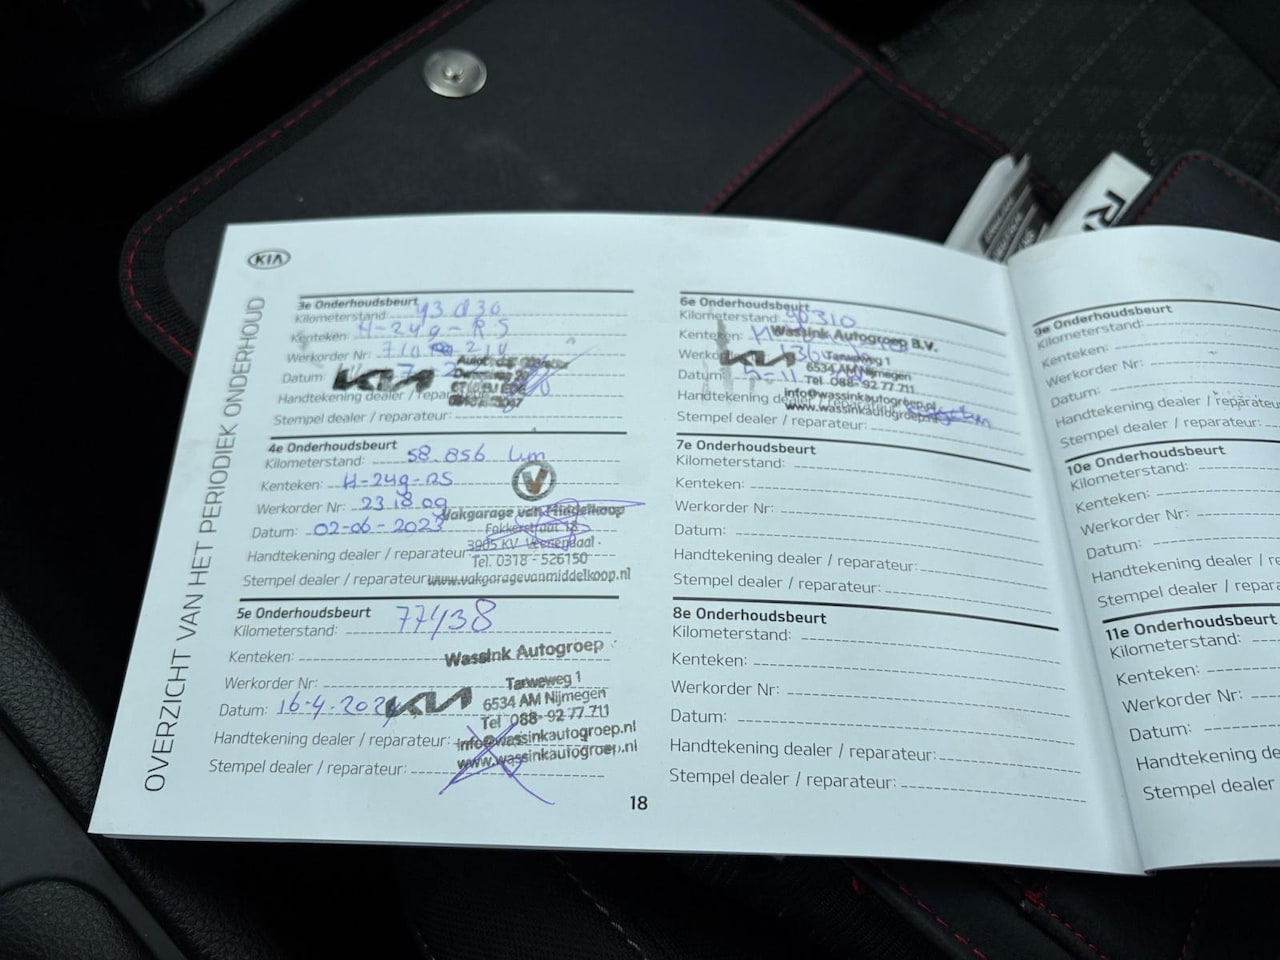 KIA
OVERZICHT VAN HET PERIODIEK ONDERHOUD
3e Onderhoudsbeurt
Kilometerstand: 43.030
Kenteken: H-249-RS
Werkorder Nr:
Datum:
KIA
Handtekening dealer / reparateur:
Stempel dealer / reparateur:
4e Onderhoudsbeurt
Kilometerstand: 58.856 km
Kenteken: H-249-RS
Werkorder Nr: 231809
Datum: 02-06-2023
Handtekening dealer / reparateur:
Stempel dealer / reparateur:
V
Vakgarage van Middelkoop
Fokkerstraat 18
3905 KV Veenendaal
Tel. 0318 - 526150
www.vakgaragevanmiddelkoop.nl
5e Onderhoudsbeurt
Kilometerstand: 77438
Kenteken:
Werkorder Nr:
Datum: 16-4-2024
Handtekening dealer / reparateur:
Stempel dealer / reparateur:
KIA
Wassink Autogroep
Tarweweg 1
6534 AM Nijmegen
Tel 088- 92 77 711
info@wassinkautogroep.nl
www.wassinkautogroep.nl
6e Onderhoudsbeurt
Kilometerstand: 90310
Kenteken: H
Werkorder
Datum: 5-11
Handtekening dealer / reparateur:
Stempel dealer / reparateur:
KIA
Wassink Autogroep B.V.
Tarweweg 1
6534 AM Nijmegen
Tel 088- 92 77 711
info@wassinkautogroep.nl
www.wassinkautogroep.nl
7e Onderhoudsbeurt
Kilometerstand:
Kenteken:
Werkorder Nr:
Datum:
Handtekening dealer / reparateur:
Stempel dealer / reparateur:
8e Onderhoudsbeurt
Kilometerstand:
Kenteken:
Werkorder Nr:
Datum:
Handtekening dealer / reparateur:
Stempel dealer / reparateur:
18
9e Onderhoudsbeurt
Kilometerstand:
Kenteken:
Werkorder Nr:
Datum:
Handtekening dealer / reparateur
Stempel dealer / reparateur:
10e Onderhoudsbeurt
Kilometerstand:
Kenteken:
Werkorder Nr:
Datum:
Handtekening dealer / re
Stempel dealer / repara
11e Onderhoudsbeurt
Kilometerstand:
Kenteken:
Werkorder Nr:
Datum:
Handtekening de
Stempel dealer